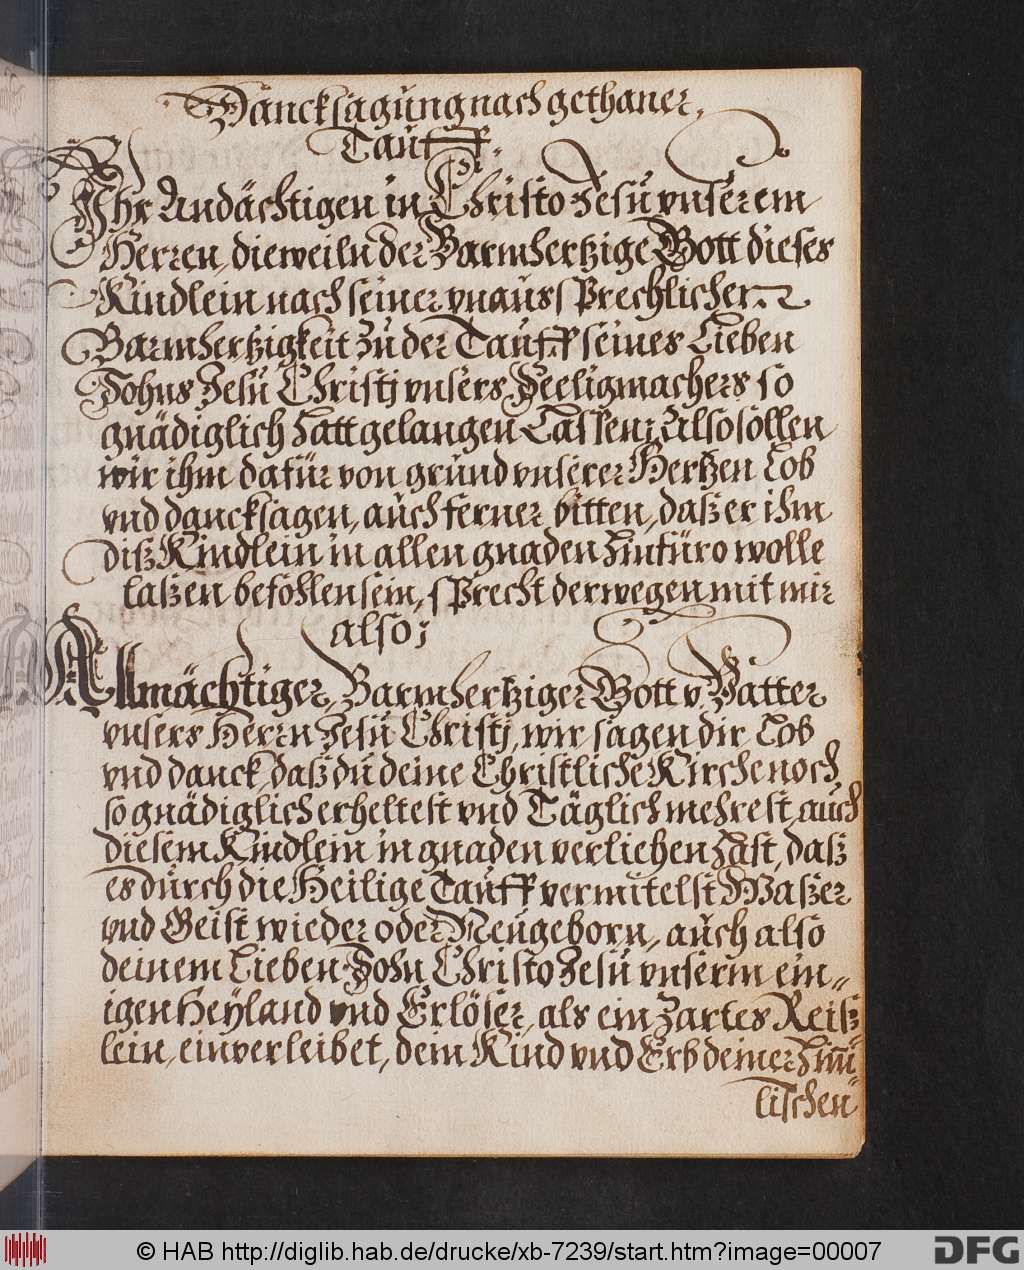 Dancksagung nach gethaner
Tauff.
Ihr Andächtigen in Christo Jesu vnserem
Herren, dieweiln der Barmhertzige Gott dieses
Kindlein nach seiner vnausSprechlichen
Barmhertzigkeit zu der Tauff seines Lieben
Sohns Jesu Christj vnsers Seeligmachers so
gnädiglich hatt gelangen Lassen; Also sollen
wir ihm dafür von grund vnserer Hertzen Lob
vnd dancksagen, auch ferner bitten, daß er ihm
diß Kindlein in allen gnaden hinfüro wolle
laßen befohlen sein, sPrecht derwegen mit mir
also;
Allmächtiger, Barmhertziger Gott v. Vatter
vnsers Herrn Jesu Christj, wir sagen dir Lob
vnd danck, daß du deine Christliche Kirche noch
so gnädiglich erheltest vnd Täglich mehrest, auch
diesem Kindlein in gnaden verliehen hast, daß
es durch die Heilige Tauff vermitelst Waßer
vnd Geist wieder oder Neugeborn, auch also
deinem Lieben Sohn Christo Jesu vnserm ein„
igen Heyland vnd Erlöser, als ein Zartes Reiß
lein, einverleibet, dem Kind vnd Erb deiner him̄
lischen
© HAB http://diglib.hab.de/drucke/xb-7239/start.htm?image=00007
DFG